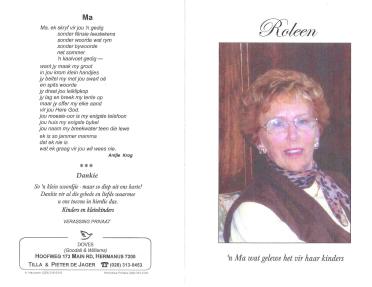 Ma
Ma, ek skryf vir jou 'n gedig
sonder fênsie leestekens
sonder woorde wat rym
sonder bywoorde
net sommer
'n kaalvoet gedig —
want jy maak my groot
in jou krom klein handjies
jy beitel my met jou swart oë
en spits woorde
jy draai jou leiklipkop
jy lag en breek my tente op
maar jy offer my elke aand
vir jou Here God.
jou moesie-oor is my enigste telefoon
jou huis my enigste bybel
jou naam my breekwater teen die lewe
ek is so jammer mamma
dat ek nie is
wat ek graag vir jou wil wees nie.
Antjie Krog
***
Dankie
So 'n klein woordjie - maar so diep uit ons harte!
Dankie vir al die gebede en liefde waarmee
u ons toevou in hierdie dae.
Kinders en kleinkinders
VERASSING PRIVAAT
DOVES
(Goodall & Williams)
HOOFWEG 172 MAIN RD, HERMANUS 7200
TILLA & PIETER DE JAGER ☎ (028) 313-0453
Roleen
'n Ma wat gelewe het vir haar kinders